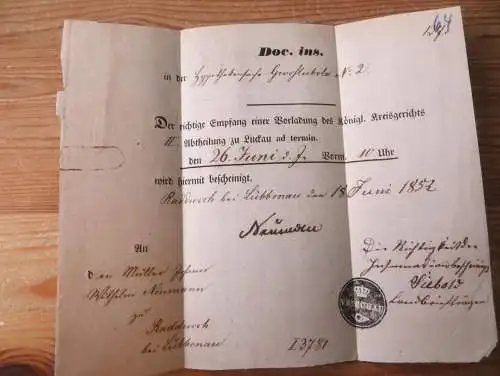 64
Doc. ins.
in der Hypothekensache No. 2
Der richtige Empfang einer Vorladung des Königl. Kreisgerichts
II Abtheilung zu Luckau ad termin.
den 26. Juni d. J. Vorm. 10 Uhr
wird hiermit bescheinigt.
Raddusch bei Lübbenau den 18 Juni 1852
Neumann
An
den Müller Johann
Wilhelm Neumann
zu
Raddusch
bei Lübbenau
Die Richtigkeit der
Insinuationsbescheinigung
Siebold
Landbriefträger
I 3781